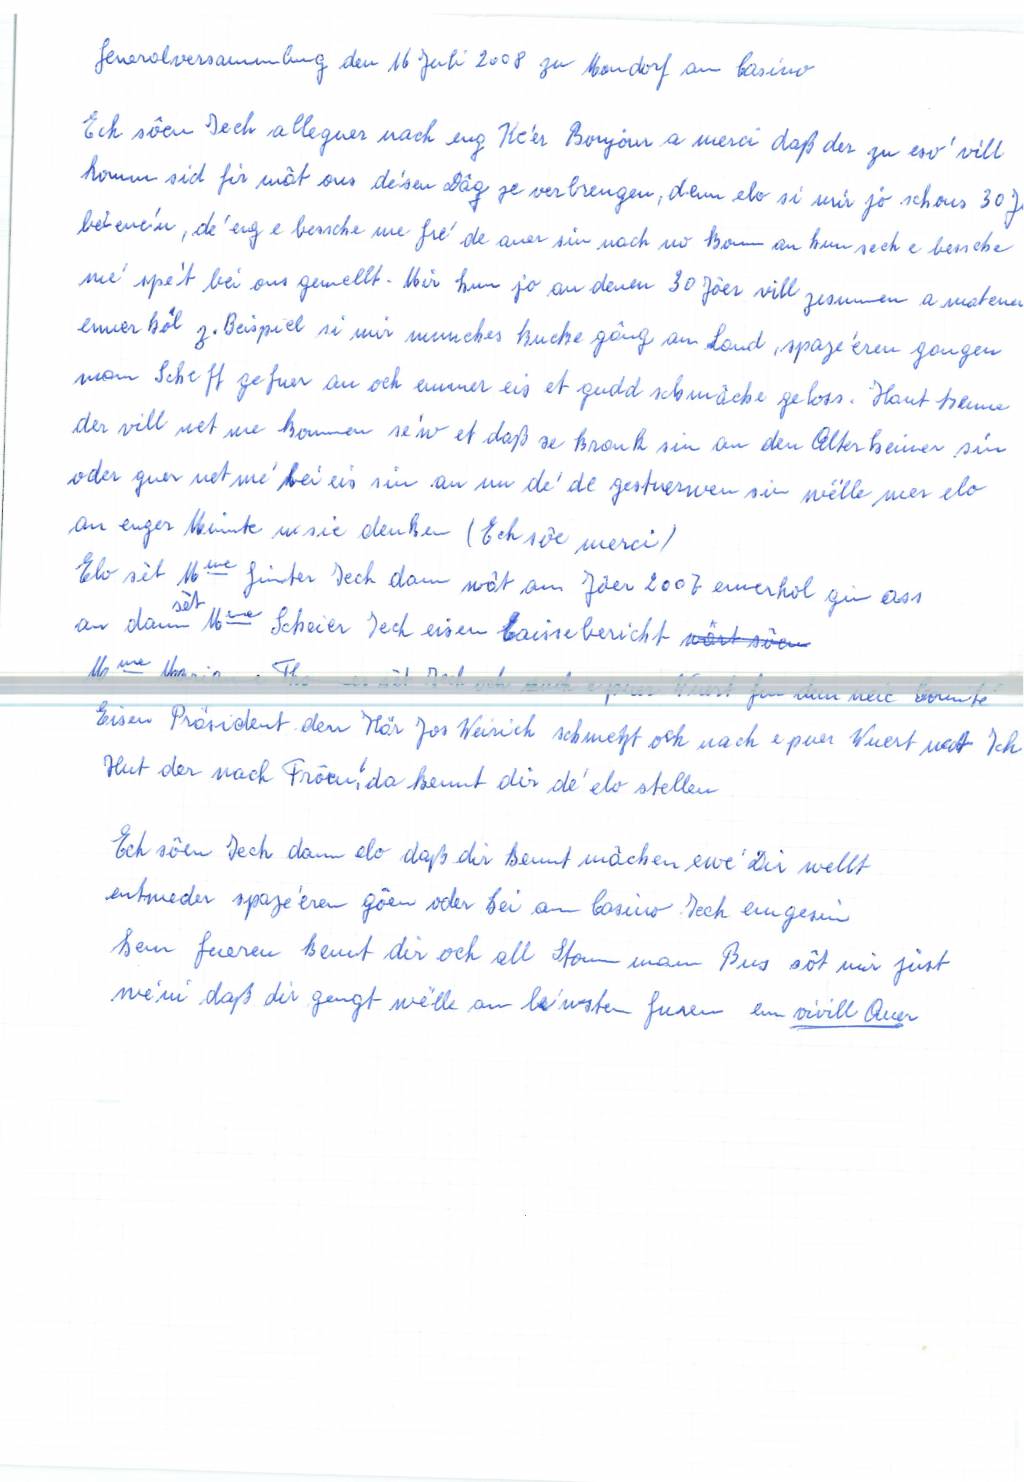 Generalversammlung den 16 Juli 2008 zu Mondorf am Casino
Ech sôen Iech alleguer nach eng Ke'er Bonjour a merci daß der zu eso' vill
komm sid fir mât ons de'sen Dâg ze verbrengen, denn elo si mir jo schons 30 J
beienein, de' eng e bessche me fre' de aner sin nach no komm an hun sech e bessche
me' spe't bei ons gemellt. Mir hun jo an denen 30 Jôer vill zesummen a matener
emer hôl z. Beispiel si mir munches kucke gâng am Land, spaze'eren gangen
mam Scheff gefuer an och emmer eis et gudd schmâche geloss. Haut kenne
der vill net me kommen se'w et daß se krank sin an den Alterheimer sin
oder guer net me' bei eis sin an un de' de gestuerwen sin wëlle mer elo
an enger Minute u sie denken (Ech sôe merci)
Elo sêt Mme Ginter Iech dann wât am Jôer 2007 emerhol gin ass
an dann sêt Mme Scheier Iech eisen Caissebericht wârt sôen
Mme och nach e puer Wuert
Eisen Präsident den Hâr Jos Weirich schwetzt och nach e puer Wuert mat Ich
Hut der nach Frôen, da kennt dir de' elo stellen
Ech sôen Iech dann elo daß dir kennt mâchen ewe' Dir wellt
entweder spaze'eren gôen oder hei am Casino Iech emgesin
hem fueren kennt dir och all Stonn mam Bus sôt mir just
we'ni daß dir gengt wëlle am le'wsten fueren em vivill Auer